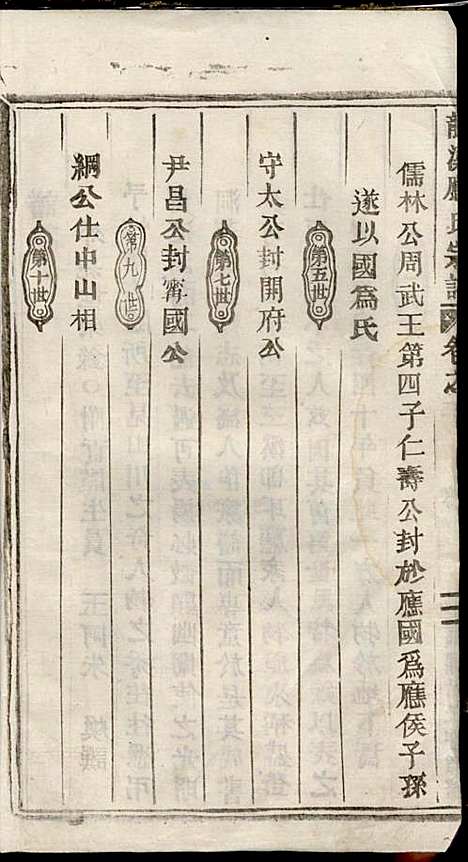 應氏宗譜
儒林公周武王第四子仁壽公封於應國爲應侯子孫
遂以國爲氏
第五世
守太公封開府公
第七世
尹昌公封寗國公
第九世
綱公仕中山相
第十世